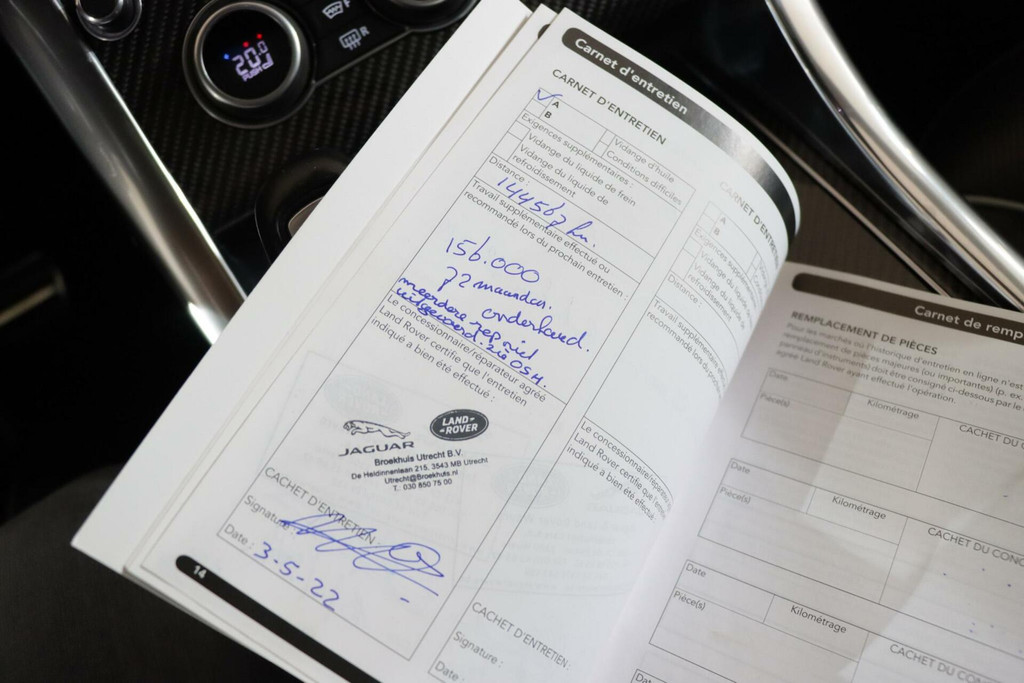 20.0
PUSH
R
Carnet d'entretien
CARNET D'ENTRETIEN
A
B
Vidange d'huile
Conditions difficiles
Exigences supplémentaires :
Vidange du liquide de frein
Vidange du liquide de
refroidissement
Distance :
144567 km.
Travail supplémentaire effectué ou
recommandé lors du prochain entretien :
156.000
72 maanden.
onderhoud.
meerdere rep niet
uitgevoerd. zie OSH.
Le concessionnaire/réparateur agréé
Land Rover certifie que l'entretien
indiqué a bien été effectué :
JAGUAR
LAND-
ROVER
Broekhuis Utrecht B.V.
De Heldinnenlaan 215, 3543 MB Utrecht
Utrecht@Broekhuis.nl
T.: 030 850 75 00
CACHET D'ENTRETIEN :
Signature :
Date :
3-5-22
14
CARNET D'ENTRE
A
B
Exigences supplém
Vidange du
Vidange du liquide
refroidissement
Distance :
Travail supplémentaire
recommandé lors du
Le concessionnaire/répar
Land Rover certifie que l'en
indiqué a bien été effectué
CACHET D'ENTRETIEN :
Signature :
Date :
Carnet de remp
REMPLACEMENT DE PIÈCES
Pour les marchés où l'historique d'entretien en ligne n'est
remplacement de pièces majeures (ou importantes) (p. ex.
d'instruments) doit être consigné ci-dessous par le
agréé Land Rover ayant effectué l'opération.
Date
Kilométrage
CACHET DU CON
Pièce(s)
Date
Kilométrage
CACHET DU CONC
Pièce(s)
Date
Kilométrage
CACHET DU CON
Pièce(s)
Date